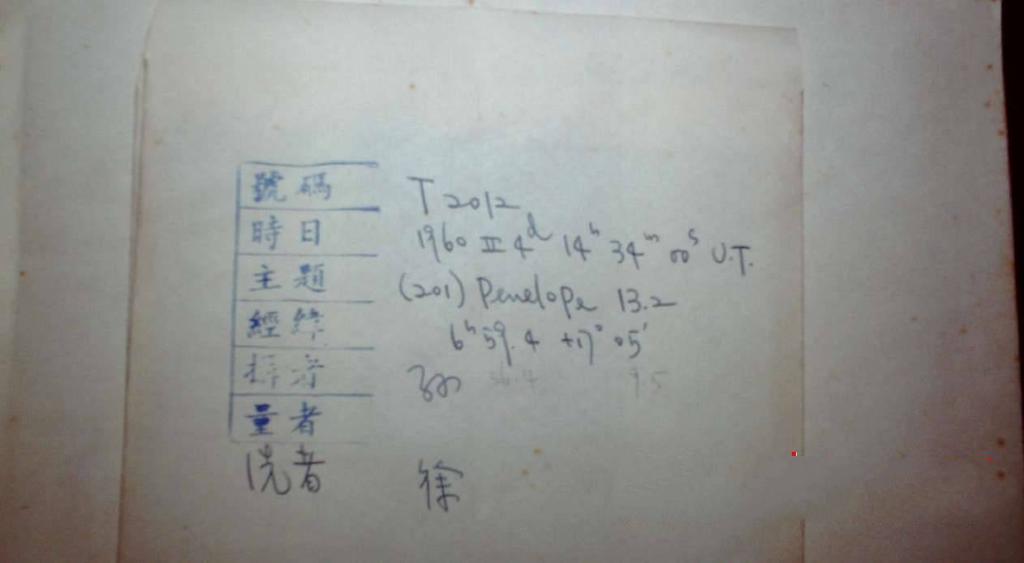 號碼 T 2012
時日 1960 II 4ᵈ 14ʰ 34ᵐ 00ˢ U.T.
主題 (201) Penelope 13.2
經緯 6ʰ 59.4 +17° 05'
攝者 孙 36.4 9.5
量者
洗者 徐